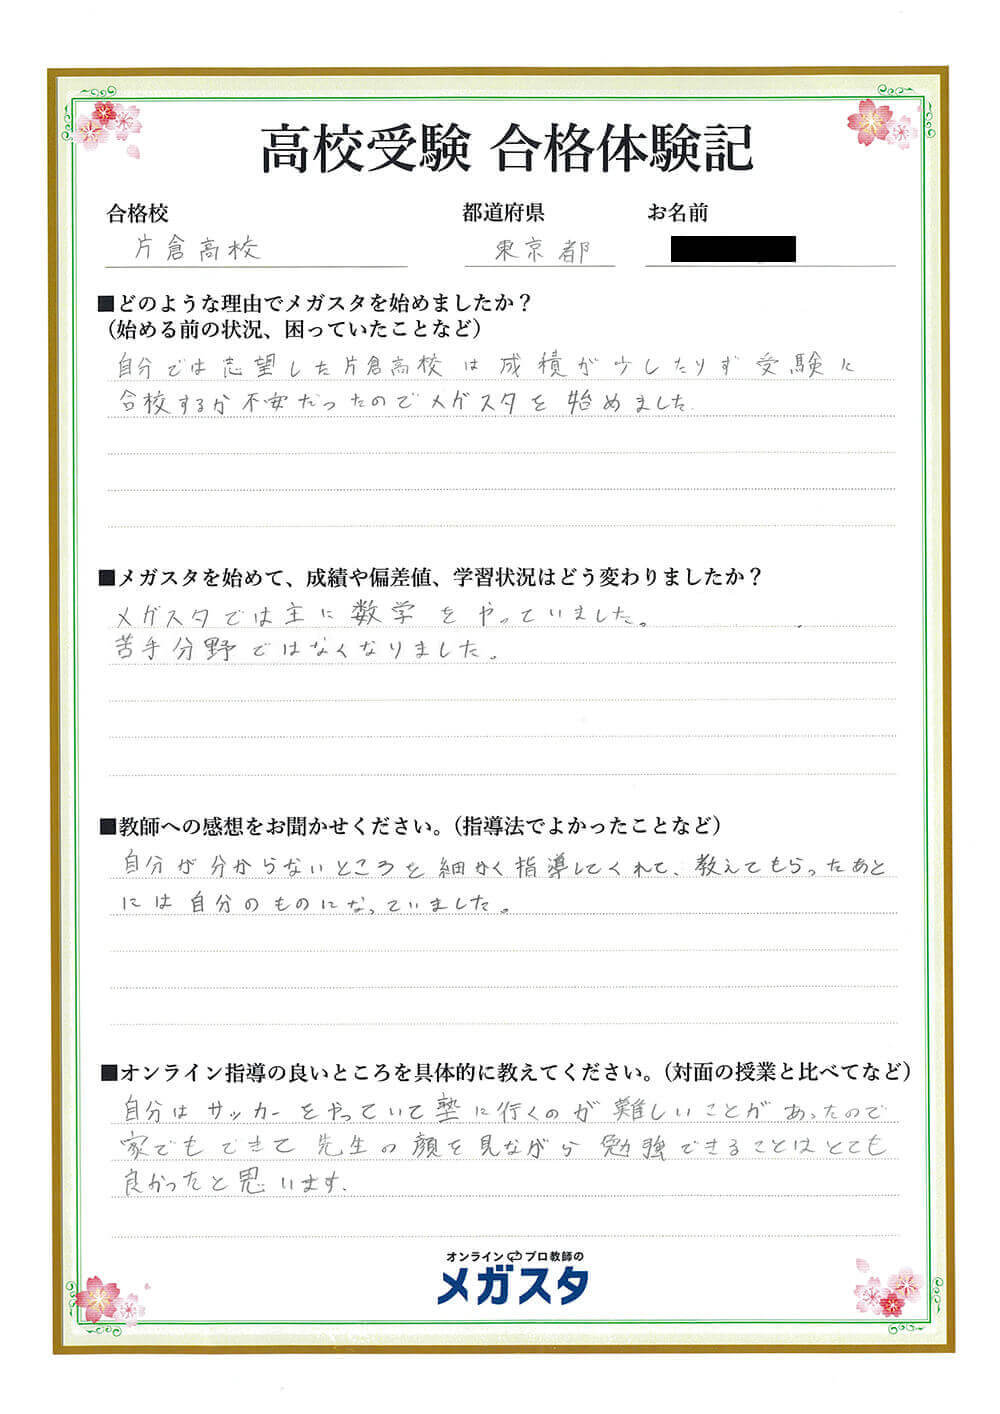 高校受験 合格体験記
合格校 都道府県 お名前
片倉高校 東京都
■どのような理由でメガスタを始めましたか？
（始める前の状況、困っていたことなど）
自分では志望した片倉高校は成積が少したりず受験に
合校するか不安だったのでメガスタを始めました.
■メガスタを始めて、成績や偏差値、学習状況はどう変わりましたか？
メガスタでは主に数学をやっていました。
苦手分野ではなくなりました。
■教師への感想をお聞かせください。（指導法でよかったことなど）
自分が分からないところを細かく指導してくれて、教えてもらったあと
には自分のものになっていました。
■オンライン指導の良いところを具体的に教えてください。（対面の授業と比べてなど）
自分はサッカーをやっていて塾に行くのが難しいことがあったので
家でもできて先生の顔を見ながら勉強できることはとても
良かったと思います.
オンライン プロ教師の
メガスタ